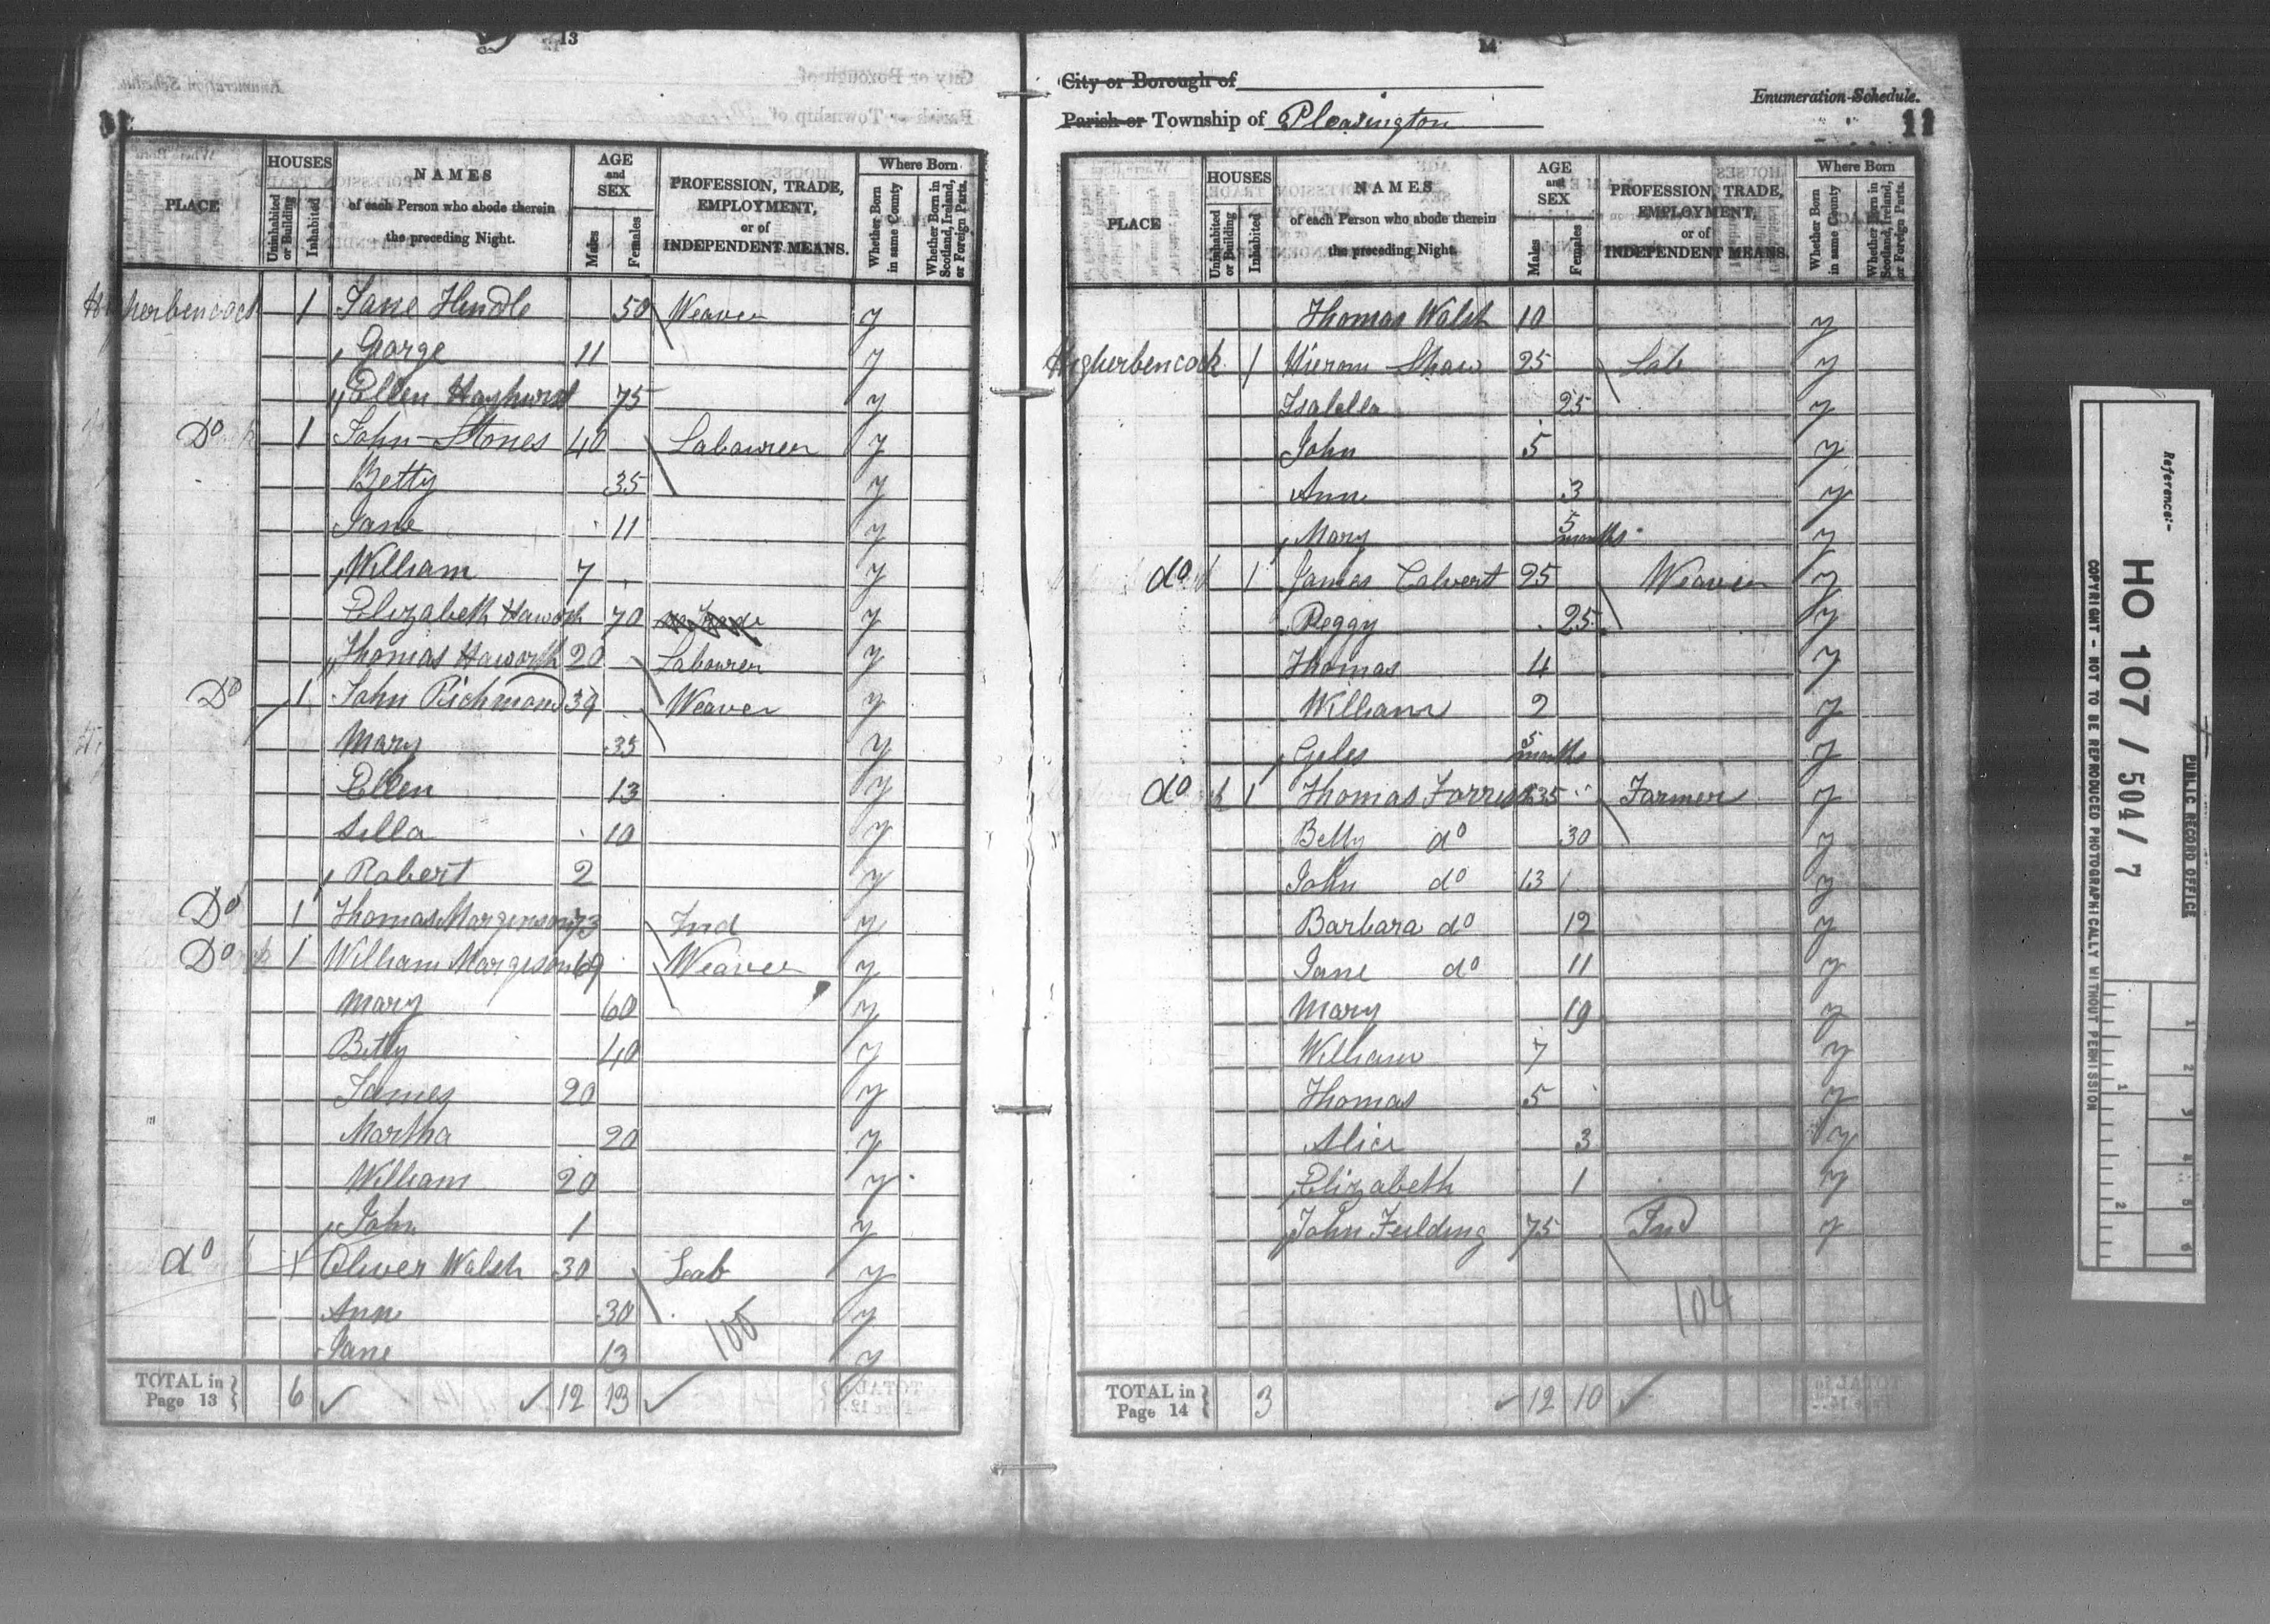 13
PLACE
HOUSES
Uninhabited or Building
Inhabited
NAMES
of each Person who abode therein
the preceding Night.
AGE
and
SEX
Males
Females
PROFESSION, TRADE,
EMPLOYMENT,
or of
INDEPENDENT MEANS.
Where Born
Whether Born in same County
Whether Born in Scotland, Ireland, or Foreign Parts.
Higherbencock 1 Jane Hindle 50 Weaver y
George 11 y
Ellen Hayhurst 75 y
Do 1 John Stones 40 Labourer y
Betty 35 y
Jane 11 y
William 7 y
Elizabeth Haworth 70 y
Thomas Haworth 20 Labourer y
Do 1 John Richmond 39 Weaver y
Mary 35 y
Ellen 13 y
Silla 10 y
Robert 2 y
Do 1 Thomas Margerson 73 Ind y
Do 1 William Margeson 69 Weaver y
Mary 60 y
Betty 40 y
James 20 y
Martha 20 y
William 20 y
John 1 y
do 1 Oliver Walsh 30 Lab y
Ann 30 y
Jane 13 y
TOTAL in
Page 13 } 6 12 13
14
City or Borough of
Enumeration Schedule.
Parish or Township of Pleasington
11
PLACE
HOUSES
Uninhabited or Building
Inhabited
NAMES
of each Person who abode therein
the preceding Night.
AGE
and
SEX
Males
Females
PROFESSION, TRADE,
EMPLOYMENT,
or of
INDEPENDENT MEANS.
Where Born
Whether Born in same County
Whether Born in Scotland, Ireland, or Foreign Parts.
Thomas Walsh 10 y
Higherbencock 1 Hierom Shaw 25 Lab y
Isabella 25 y
John 5 y
Ann 3 y
Mary 5 months y
do 1 James Calvert 25 Weaver y
Peggy 25 y
Thomas 4 y
William 2 y
Giles 5 months y
do 1 Thomas Forrest 35 Farmer y
Betty do 30 y
John do 13 y
Barbara do 12 y
Jane do 11 y
Mary 19 y
William 7 y
Thomas 5 y
Alice 3 y
Elizabeth 1 y
John Feilding 75 Ind y
104
TOTAL in
Page 14 } 3 12 10
Reference:-
HO 107 / 504 / 7
PUBLIC RECORD OFFICE
COPYRIGHT - NOT TO BE REPRODUCED PHOTOGRAPHICALLY WITHOUT PERMISSION
1 2 3 4 5 6
1 2